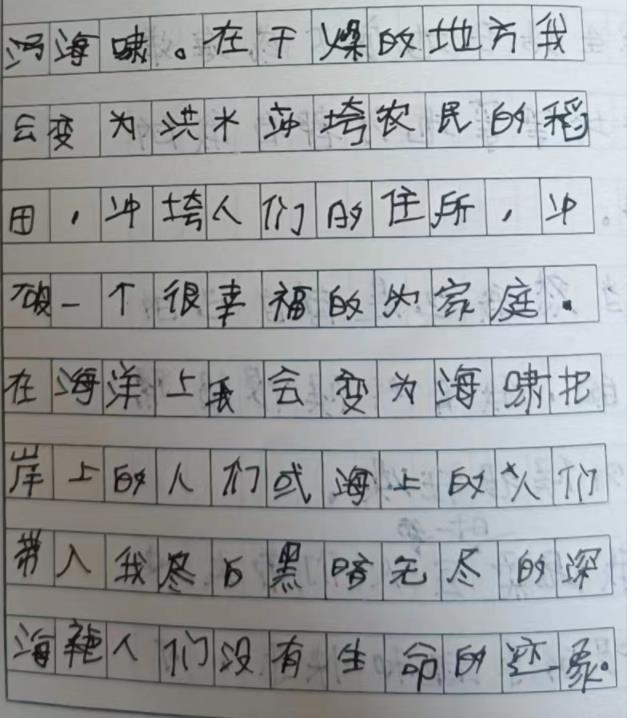 海啸。在干燥的地方我
会变为洪水冲垮农民的稻
田，冲垮人们的住所，冲
破一个很幸福的的家庭.
在海洋上我会变为海啸把
岸上的人们或海上的人们
带入我尽的黑暗无尽的深
海 人们没有生命的迹象。